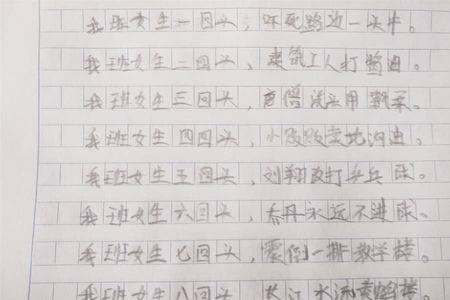 我班女生一回头，吓死路边一头牛。
我班女生二回头，建筑工人打酱油。
我班女生三回头，唐僧洗头用飘柔。
我班女生四回头，小贩贩卖地沟油。
我班女生五回头，刘翔改打乒乓球。
我班女生六回头，乔丹永远不进球。
我班女生七回头，震倒一排教学楼。
我班女生八回头，长江水流